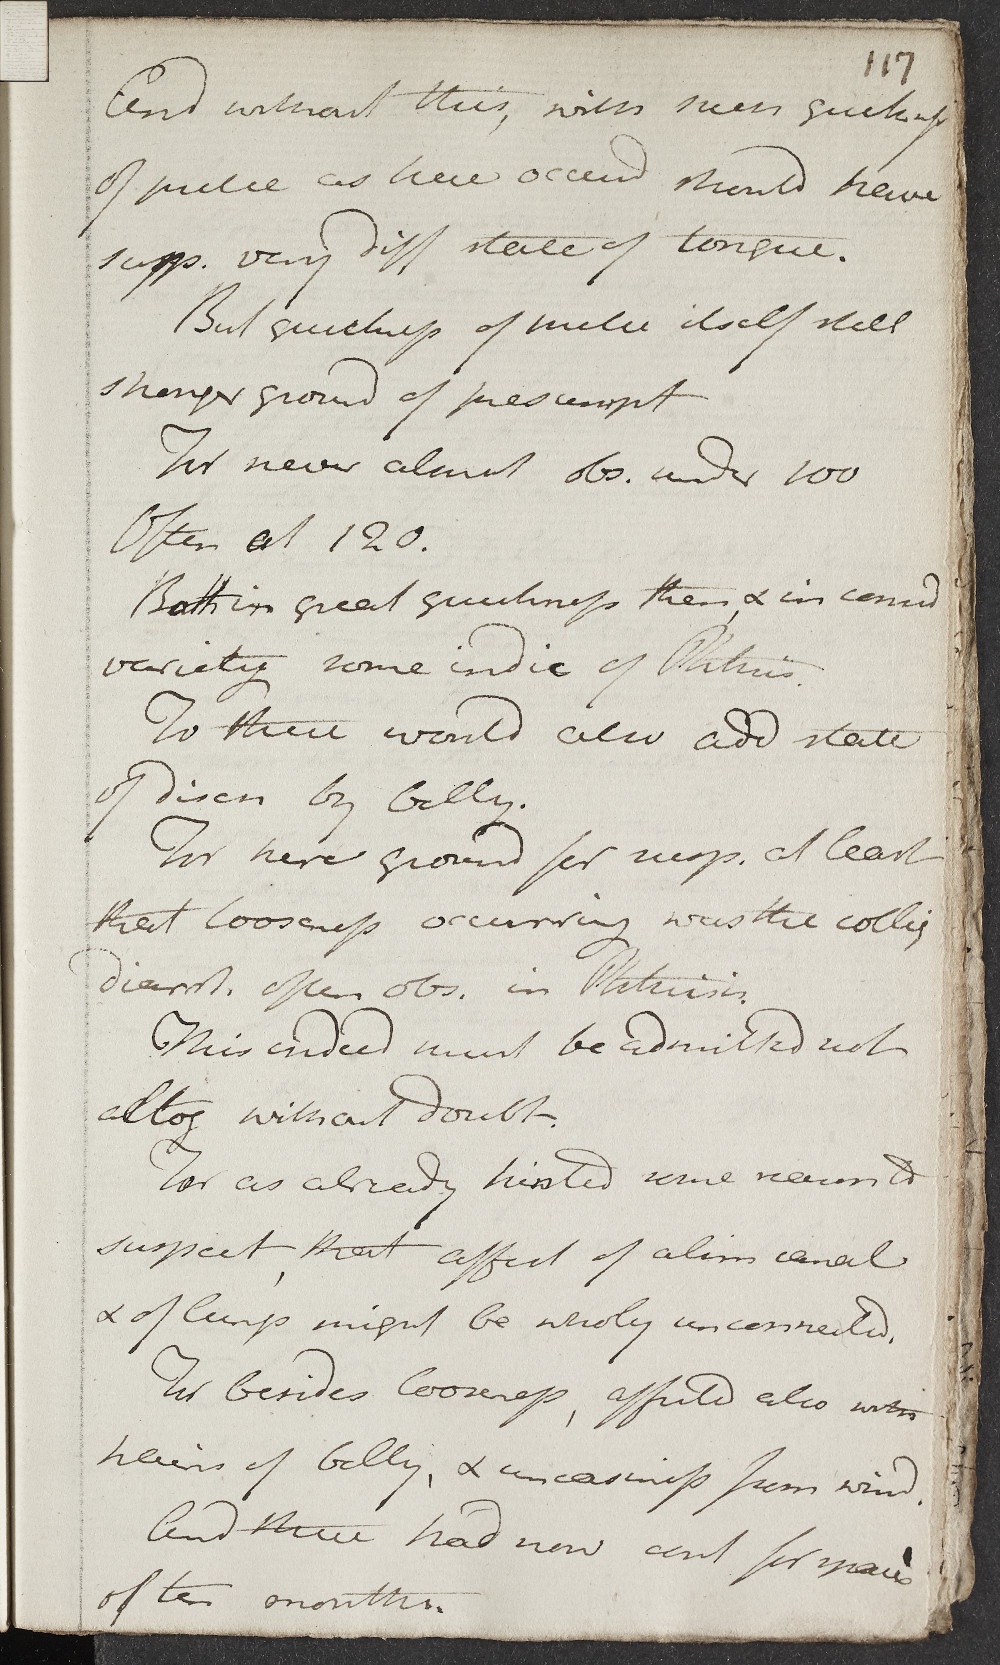 117
And without this, with such quickness
of pulse as here occurd should have
supp. very diff state of tongue.
But quickness of pulse itself still
stronger ground of presumpt
For never almost obs. under 100
Often at 120.
Both in great quickness then, & in consid
variety some indic of Phthisis.
To these would also add state
of disch by belly.
For here ground for susp. at least
that looseness occurring was the colliq
diarrh. often obs. in Phthisis.
This indeed must be admitted not
altog without doubt.
For as already hinted some reason to
suspect, that affect of alim canal
& of lungs might be wholy unconnected.
For besides looseness, affected also with
pains of belly, & uneasiness from wind.
And these had now cont for space
of ten months.